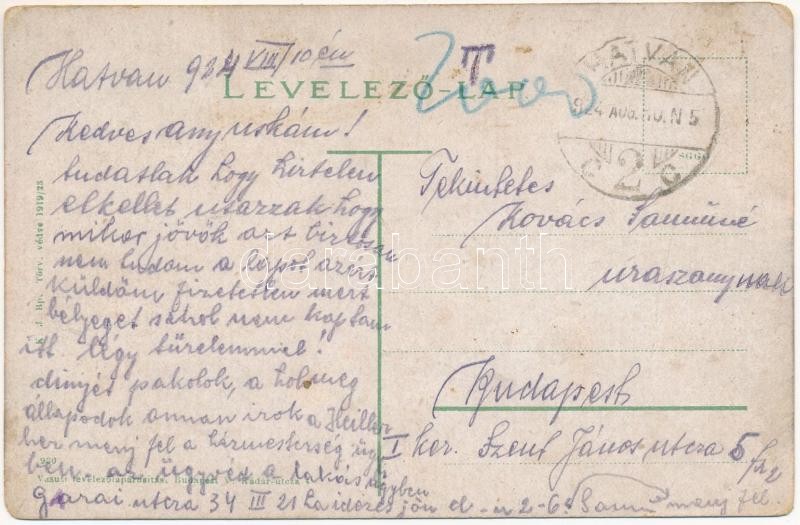 Hatvan 924 VIII/10 én
LEVELEZŐ-LAP
T
HATVAN
924 AUG. 10. N 5
c 2 c
Kedves anyuskám!
tudatlak hogy hirtelen
elkellet utazzak hogy
mikor jövök azt biztosan
nem tudom a lapot azért
küldöm fizetetlen mert
bélyeget sehol nem kaptam
itt. légy türelemmel!
dinnyés pakolok, a hol meg
állapodok annan irok a Heiller
hez menj fel a házmesterség ügy
ben. az ügyvéd a lakás ügyben
Garai utca 34 III 21 ha idezés jön d-u 2-6 menj fel.
Tekintetes
Kovács Samuné
uraszonynak
Budapest
I ker. Szent János utca 5
Bp. Törv. védve 1919/23
920
Vasuti levelezőlapárusitás, Budapest V. Kádár-utca
darabanth